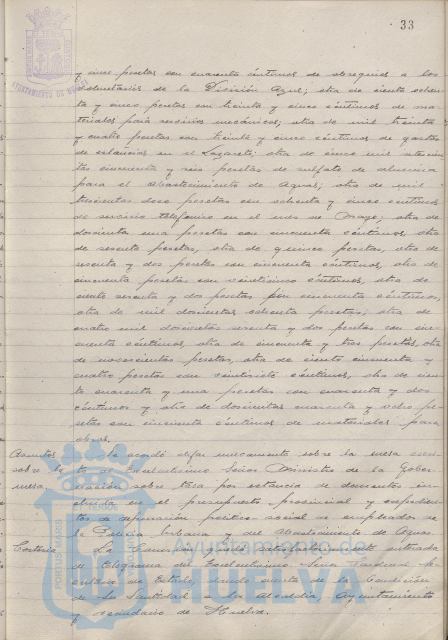 33
AYUNTAMIENTO DE
y cinco pesetas con cuarenta céntimos de obsequios a los
Voluntarios de la División Azul; otra de ciento ochen-
ta y cinco pesetas con treinta y cinco céntimos de ma-
teriales para servicios mecánicos; otra de mil treinta
y cuatro pesetas con treinta y cinco céntimos de gastos
de estancias en el Lazareto; otra de cinco mil
cincuenta y seis pesetas de sulfato de alumina
para el abastecimiento de Aguas; otra de mil
trescientas doce pesetas con ochenta y cinco céntimos
de servicio telefónico en el mes de Mayo; otra de
doscientas una pesetas con cincuenta céntimos, otra
de sesenta pesetas, otra de quince pesetas, otra de
sesenta y dos pesetas con cincuenta céntimos, otra de
cincuenta pesetas con veinticinco céntimos, otra de
ciento sesenta y dos pesetas con cincuenta céntimos,
otra de mil doscientas ochenta pesetas; otra de
cuatro mil doscientas sesenta y dos pesetas con cin-
cuenta céntimos, otra de cincuenta y tres pesetas, otra
de novecientas pesetas, otra de ciento cincuenta y
cuatro pesetas con veintisiete céntimos, otra de cien-
to cuarenta y una pesetas con cuarenta y dos
céntimos y otra de doscientas cuarenta y ocho pe-
setas con cincuenta céntimos de materiales para
obras.
Asuntos Se acordó dejar nuevamente sobre la mesa
sobre la Excelentísimo Señor Ministro de la Gober-
mesa nación sobre tasa por estancia de dementes in-
cluida en el presupuesto provincial y expedien-
tes de depuración político social de empleados de
la Policía Urbana y del Abastecimiento de Aguas.
Cortesía La Comisión quedó enterada
de telegrama del Excelentísimo Señor Cardenal Se-
cretario de Estado, dando cuenta de la bendición
de Su Santidad a la Alcaldía, Ayuntamiento
y vecindario de Huelva.
Ayuntamiento de
HUELVA
PORTUS MARIS